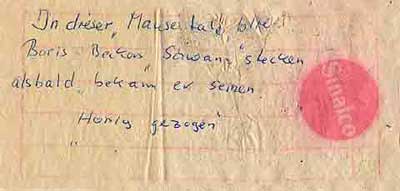 In dieser „Mausefalle blieb
Boris Beckers „Schwanz" stecken
alsbald bekam er seinen
„Honig gezogen"
Sinalco